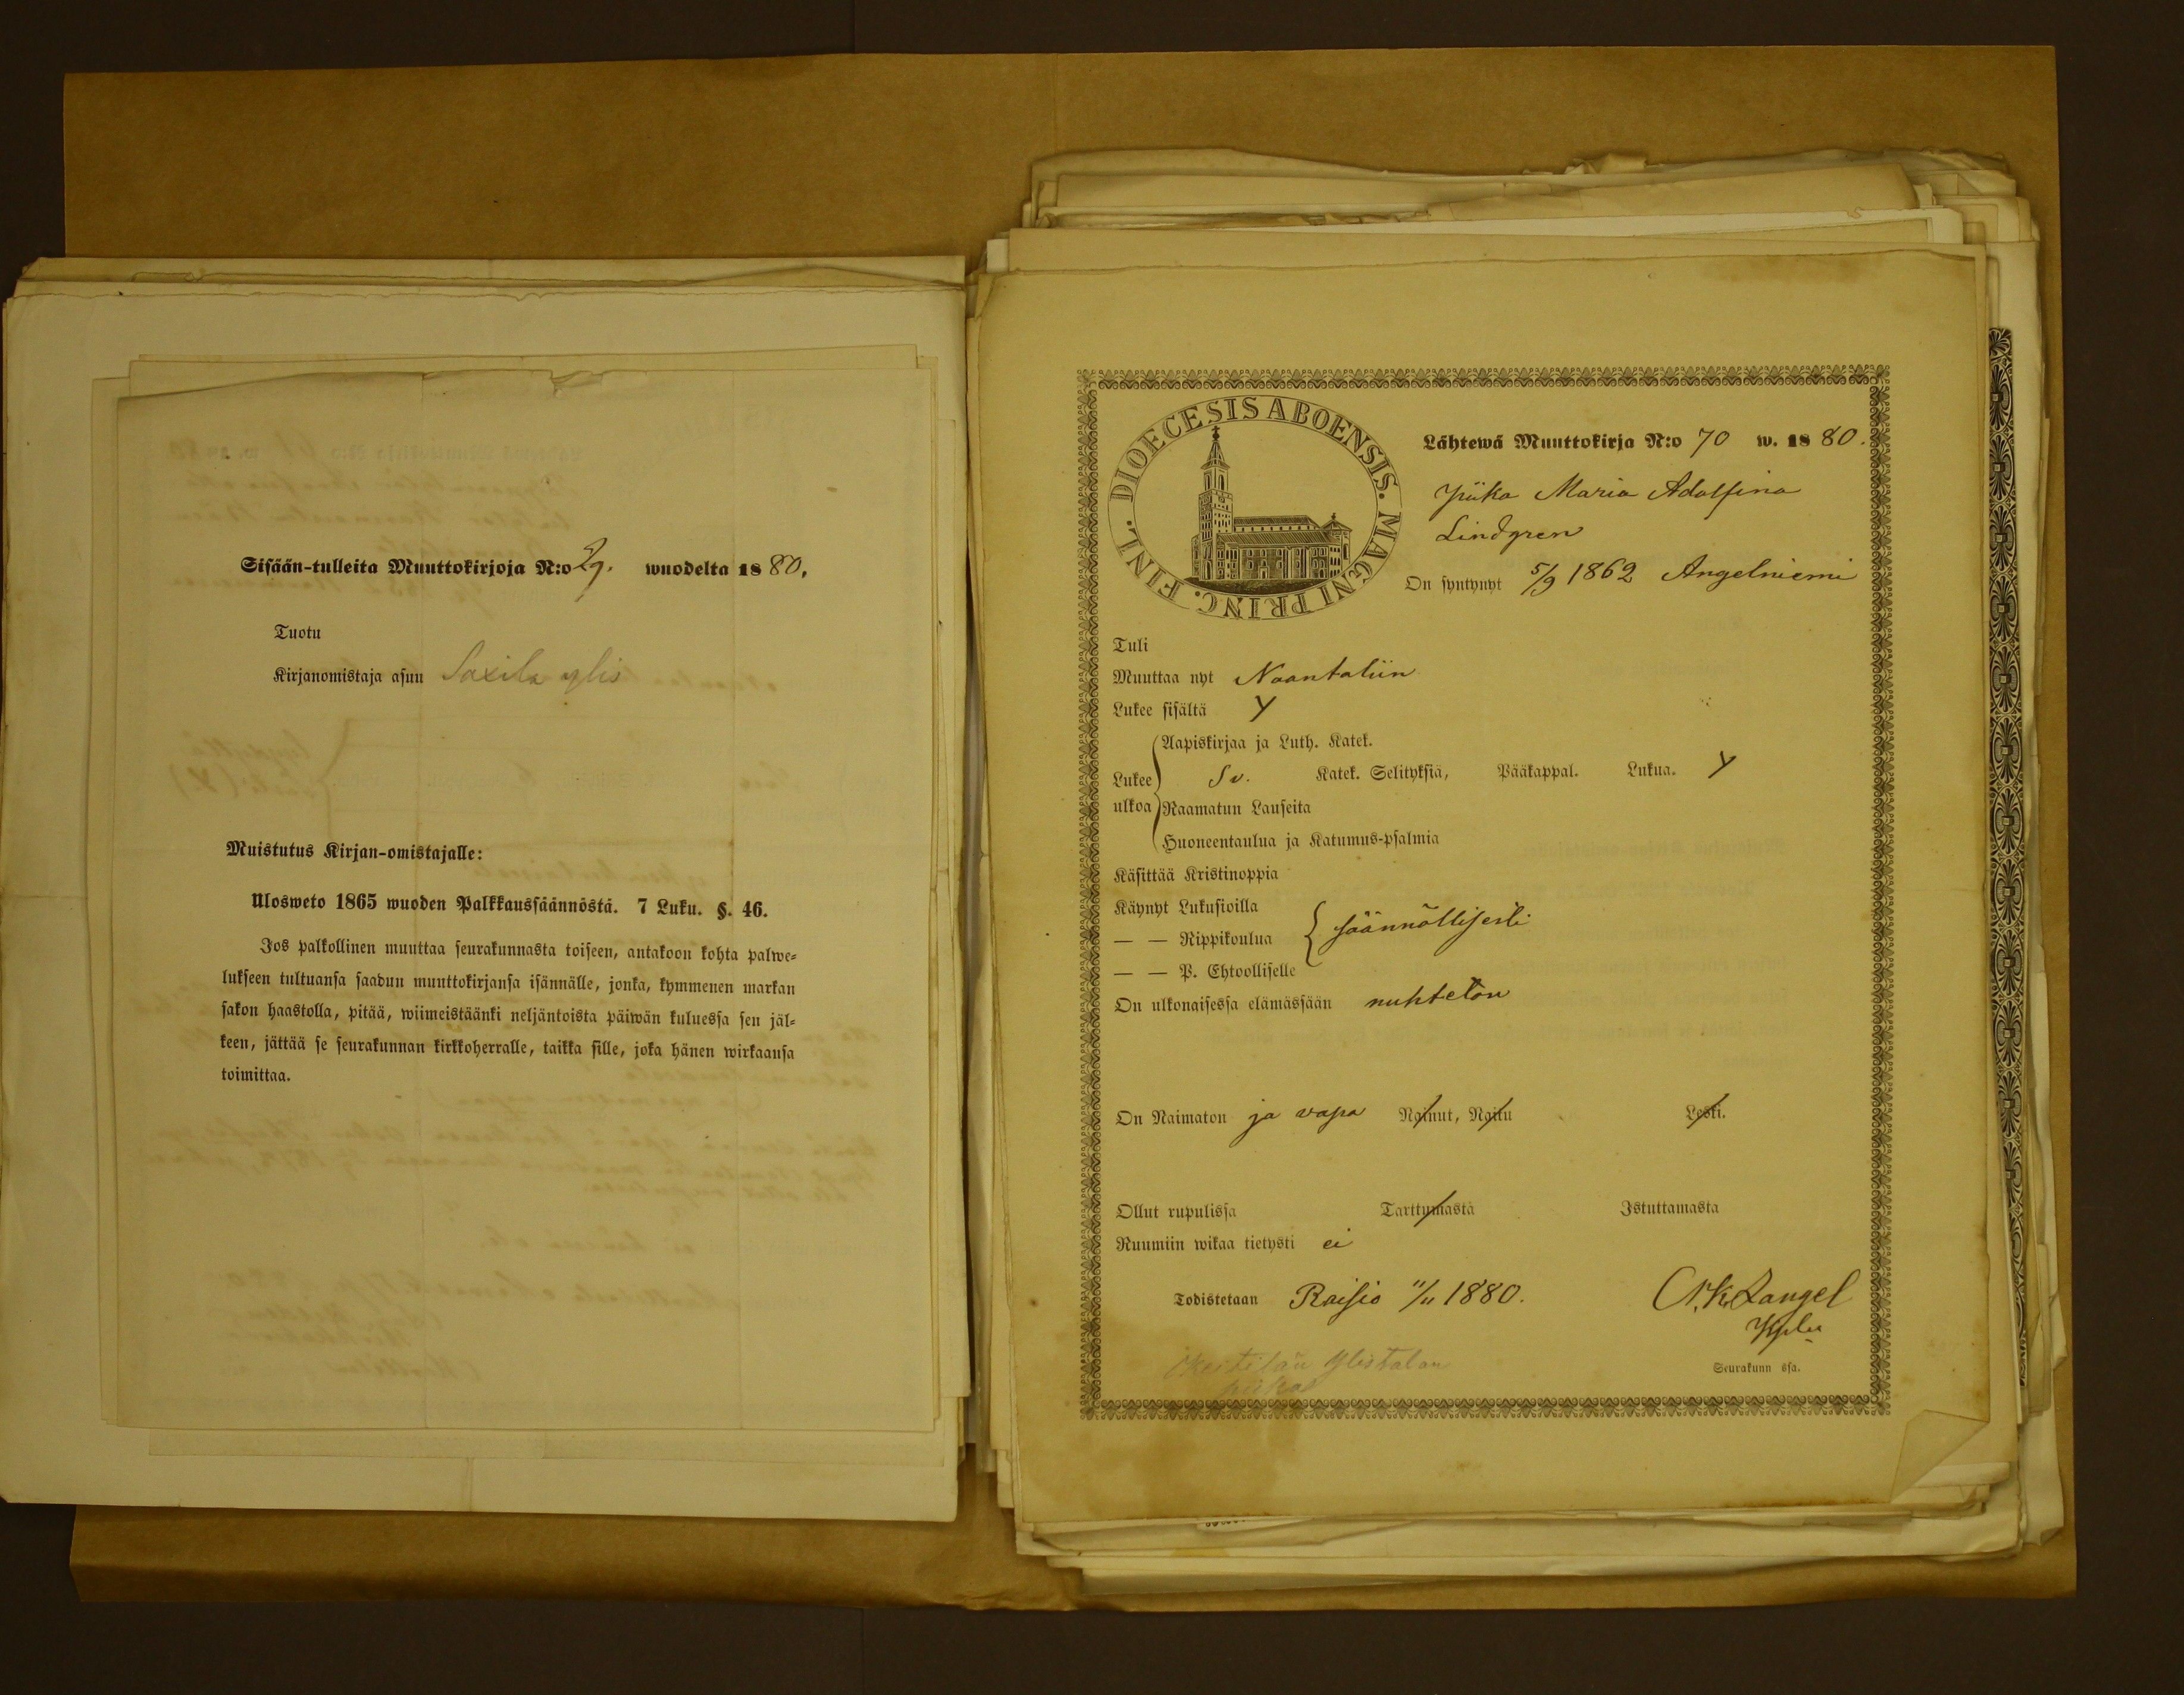 Sisään-tulleita Muuttokirjoja N:o 29. wuodelta 1880.
Tuotu
Kirjanomistaja asuu Saxila ylis
Muistutus Kirjan-omistajalle:
Ulosweto 1865 wuoden Palkkaussäännöstä. 7 Luku. §. 46.
Jos palkollinen muuttaa seurakunnasta toiseen, antakoon kohta palwe=
lukseen tultuansa saadun muuttokirjansa isännälle, jonka, kymmenen markan
sakon haastolla, pitää, wiimeistäänki neljäntoista päiwän kuluessa sen jäl=
keen, jättää se seurakunnan kirkkoherralle, taikka sille, joka hänen wirkaansa
toimittaa.
DIOECESIS ABOENSIS. MAGNI PRINC. FINL.
Lähtewä Muuttokirja N:o 70 w. 1880.
Piika Maria Adolfina
Lindgren
On syntynyt 5/9 1862 Angelniemi
Tuli
Muuttaa nyt Naantaliin
Lukee sisältä y
Lukee ulkoa
Aapiskirjaa ja Luth. Katek.
Sv. Katek. Selityksiä, Pääkappal. Lukua. y
Raamatun Lauseita
Huoneentaulua ja Katumus-psalmia
Käsittää Kristinoppia
Käynyt Lukusioilla
— — Rippikoulua säännöllisesti
— — P. Ehtoolliselle
On ulkonaisessa elämässään nuhtetön
On Naimaton ja vapa Nainut, Naitu Leski.
Ollut rupulissa Tarttumastä Istuttamasta
Ruumiin wikaa tietysti ei
Todistetaan Raisio 11/11 1880. Zangel
Seurakunn ssa.
Ylistalon
piika